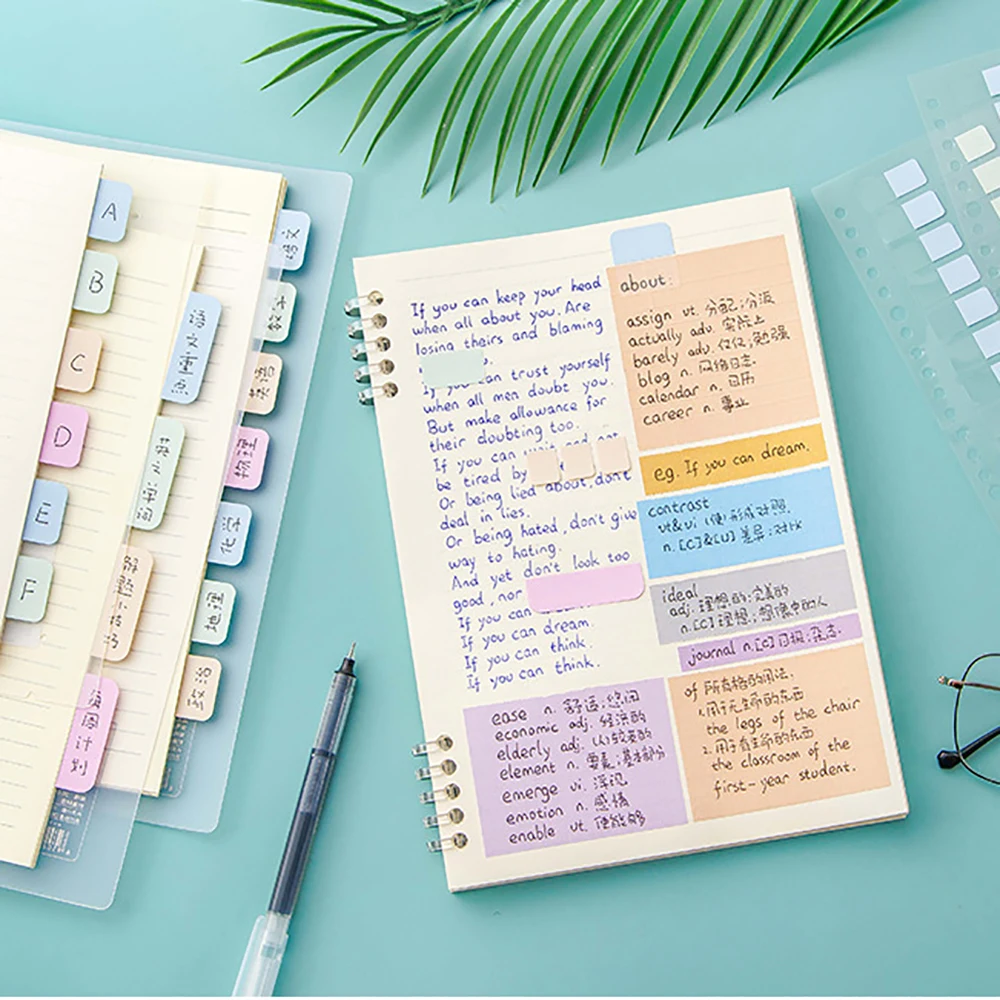 A
B
C
D
E
F
语文重点
语文
英语
物理
化学
地理
每周计划
If you can keep your head
when all about you. Are
losing theirs and blaming
If you can trust yourself
when all men doubt you.
But make allowance for
their doubting too.
If you can wait and not
be tired by
Or being lied about, don't
deal in lies.
Or being hated, don't give
way to hating.
And yet don't look too
good, nor
If you can
If you can dream.
If you can think.
If you can think.
about:
assign vt. 分配;分派
actually adv. 实际上
barely adv. 仅仅;勉强
blog n. 网络日志
calendar n. 日历
career n. 事业
eg. If you can dream.
contrast
vt&vi (使)形成对照.
n. [C]&[U] 差异;对比
ideal
adj. 理想的;完美的
n. [C] 理想;想像中的人
journal n. [C] 日报;杂志.
ease n. 舒适;悠闲
economic adj. 经济的
elderly adj. (人)较老的
element n. 要素;基本部分
emerge vi. 浮现
emotion n. 感情
enable vt. 使能够
of 所有格的用法:
1. 用于无生命的东西
the legs of the chair
2. 用于有生命的东西
the classroom of the
first-year student.